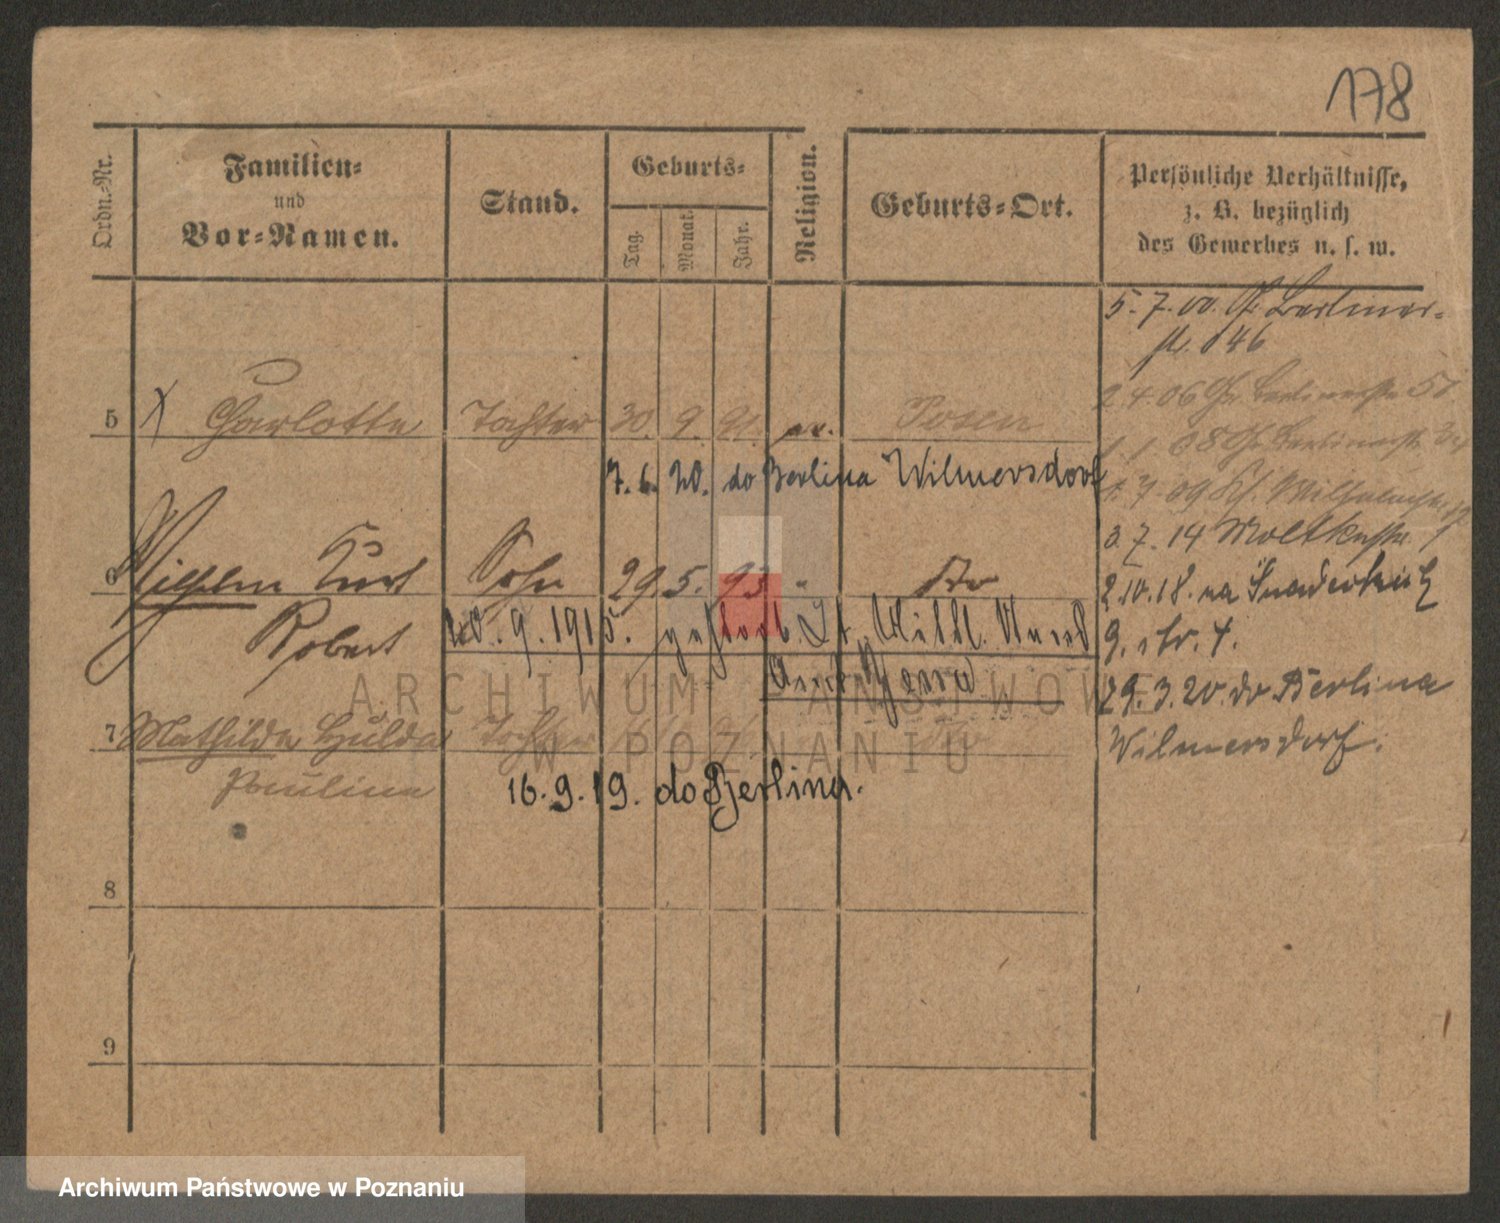 178
Ordn.-Nr.
Familien-
und
Vor-Namen.
Stand.
Geburts-
Tag.
Monat.
Jahr.
Religion.
Geburts-Ort.
Persönliche Verhältnisse,
z. B. bezüglich
des Gewerbes u. s. w.
5. 7. 00. Gr. Berliner-
str. 46
5 Charlotte Tochter 30. 9. 91. ev. Posen
2 4. 06 Gr. Berlinerstr.
1. 1. 08 Gr. Berlinerstr.
7. 6. 20. do Berlina Wilmersdorf
7. 09
3. 7. 14 Moltkestr. 1
6 Wilhelm Kurt Sohn 29. 5. 93 " do
Robert
2. 10. 18. na
9. str. 4.
9. 1915. gestorb. Wilh.
29. 3. 20. do Berlina
Wilmersdorf.
7 Mathilde Hulda Tochter
Pauline
16. 9. 19. do Berlina.
8
9
ARCHIWUM PAŃSTWOWE
W POZNANIU
Archiwum Państwowe w Poznaniu